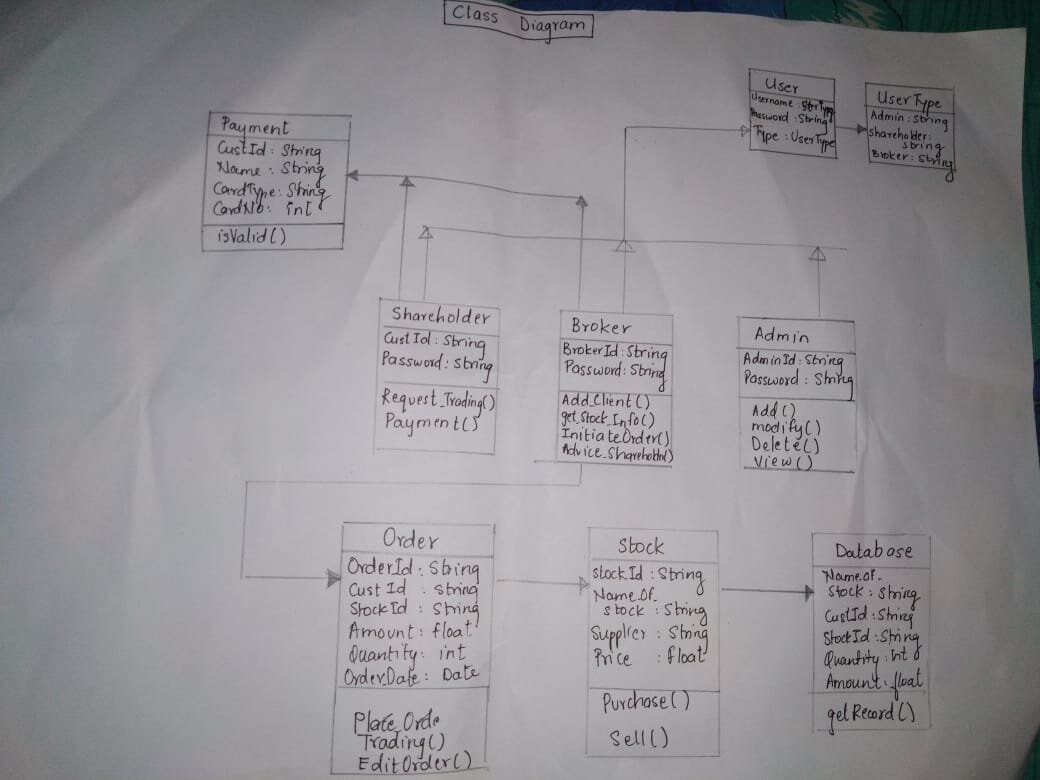 Class Diagram
User
Username : String
Password : String
Type : UserType
UserType
Admin : String
Shareholder :
String
Broker : String
Payment
CustId : String
Name : String
CardType : String
CardNo : int
isValid()
Shareholder
CustId : String
Password : String
Request_Trading()
Payment()
Broker
BrokerId : String
Password : String
Add_Client()
get_Stock_Info()
InitiateOrder()
Advice_Shareholdr()
Admin
AdminId : String
Password : String
Add()
modify()
Delete()
View()
Order
OrderId : String
Cust Id : String
StockId : String
Amount : float
Quantity : int
OrderDate : Date
Plate_Orde
Trading()
EditOrder()
Stock
stockId : String
Name_Of_
stock : String
Supplier : String
Price : float
Purchase()
Sell()
Database
Name_of_
Stock : String
CustId : String
StockId : String
Quantity : Int
Amount : float
getRecord()